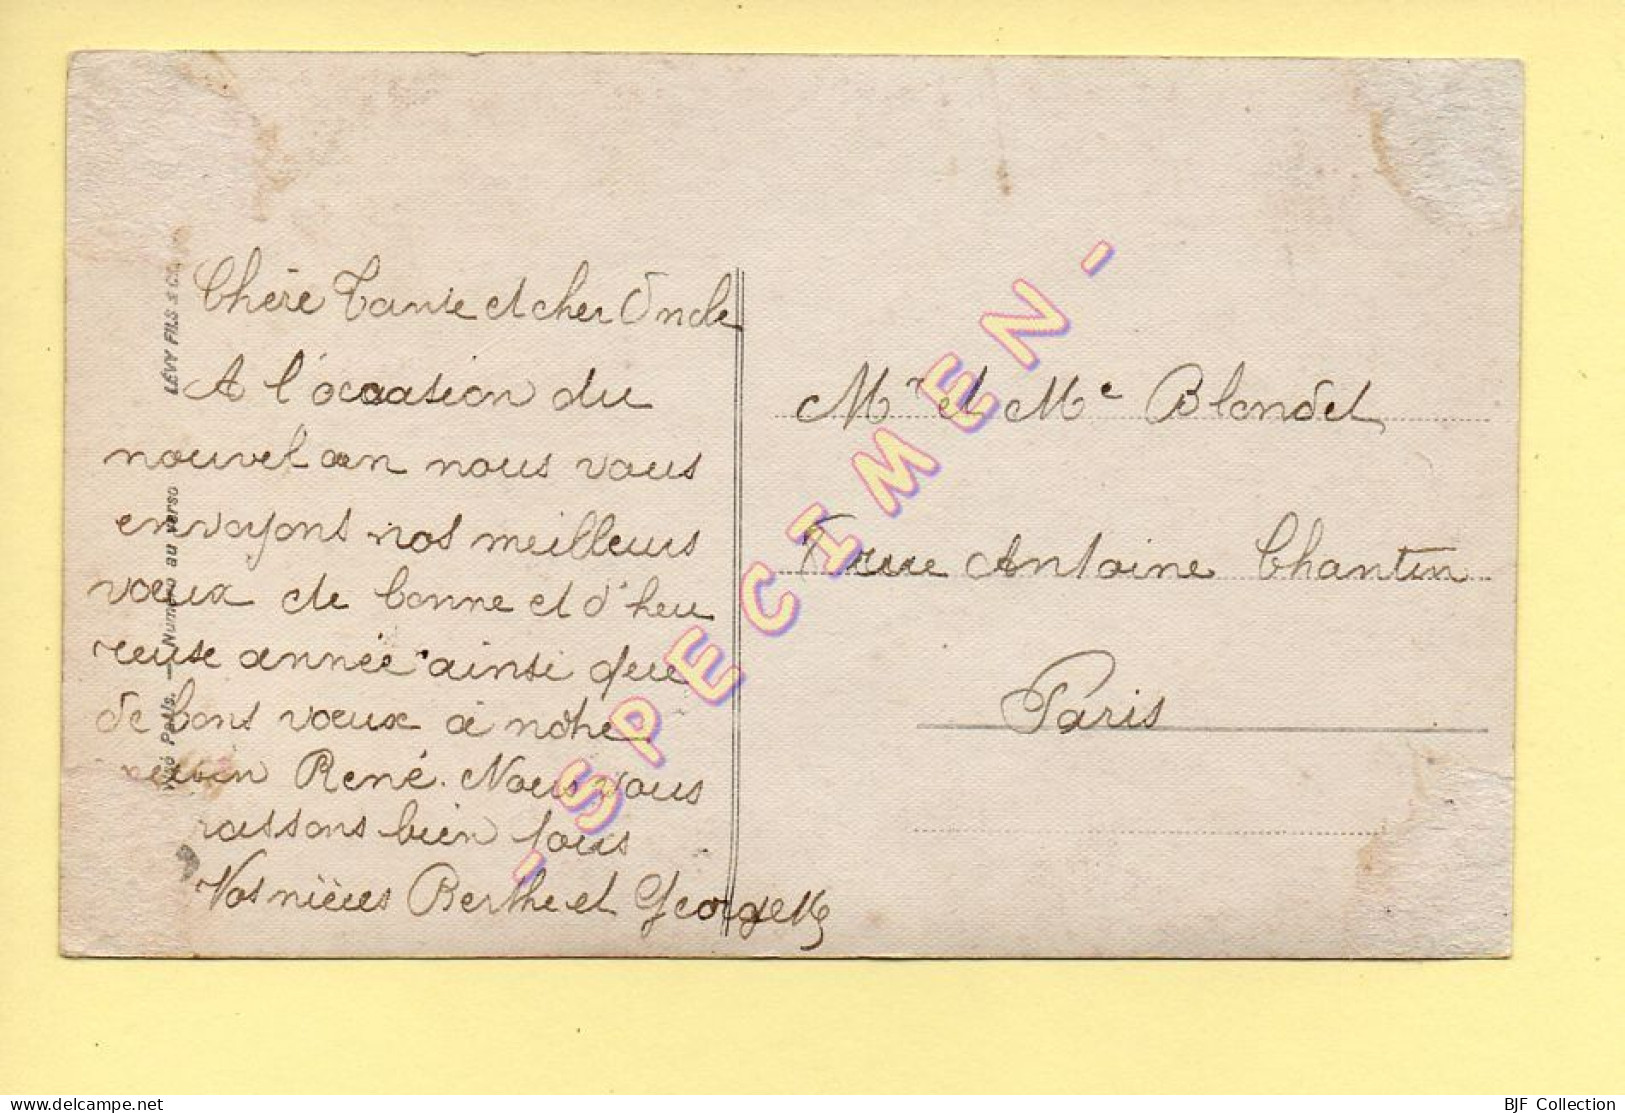 Chère Tante et cher Oncle
A l'occasion du
nouvel an nous vous
envoyons nos meilleurs
vœux de bonne et d'heu
reuse année ainsi que
de bons vœux à nôtre
René. Nous vous
bien tous
Vos nièces Berthe et Georgette
LÉVY FILS & Cie
Numéro au verso
Mr et Me Blondet
rue Antoine Chantin
Paris
- SPECIMEN -
www.delcampe.net
BJF Collection